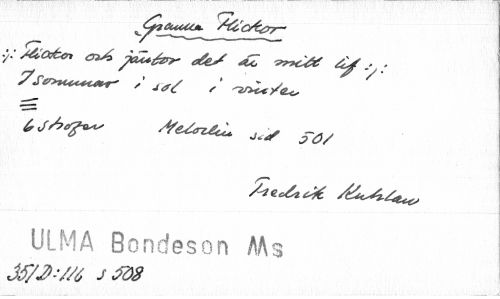 Granna Flickor
:/: Flickor och jäntor det är mitt lif :/:
I sommar i sol i vinter
6 strofer Melodin sid 501
Fredrik
ULMA Bondeson Ms
351 D:116 s 508